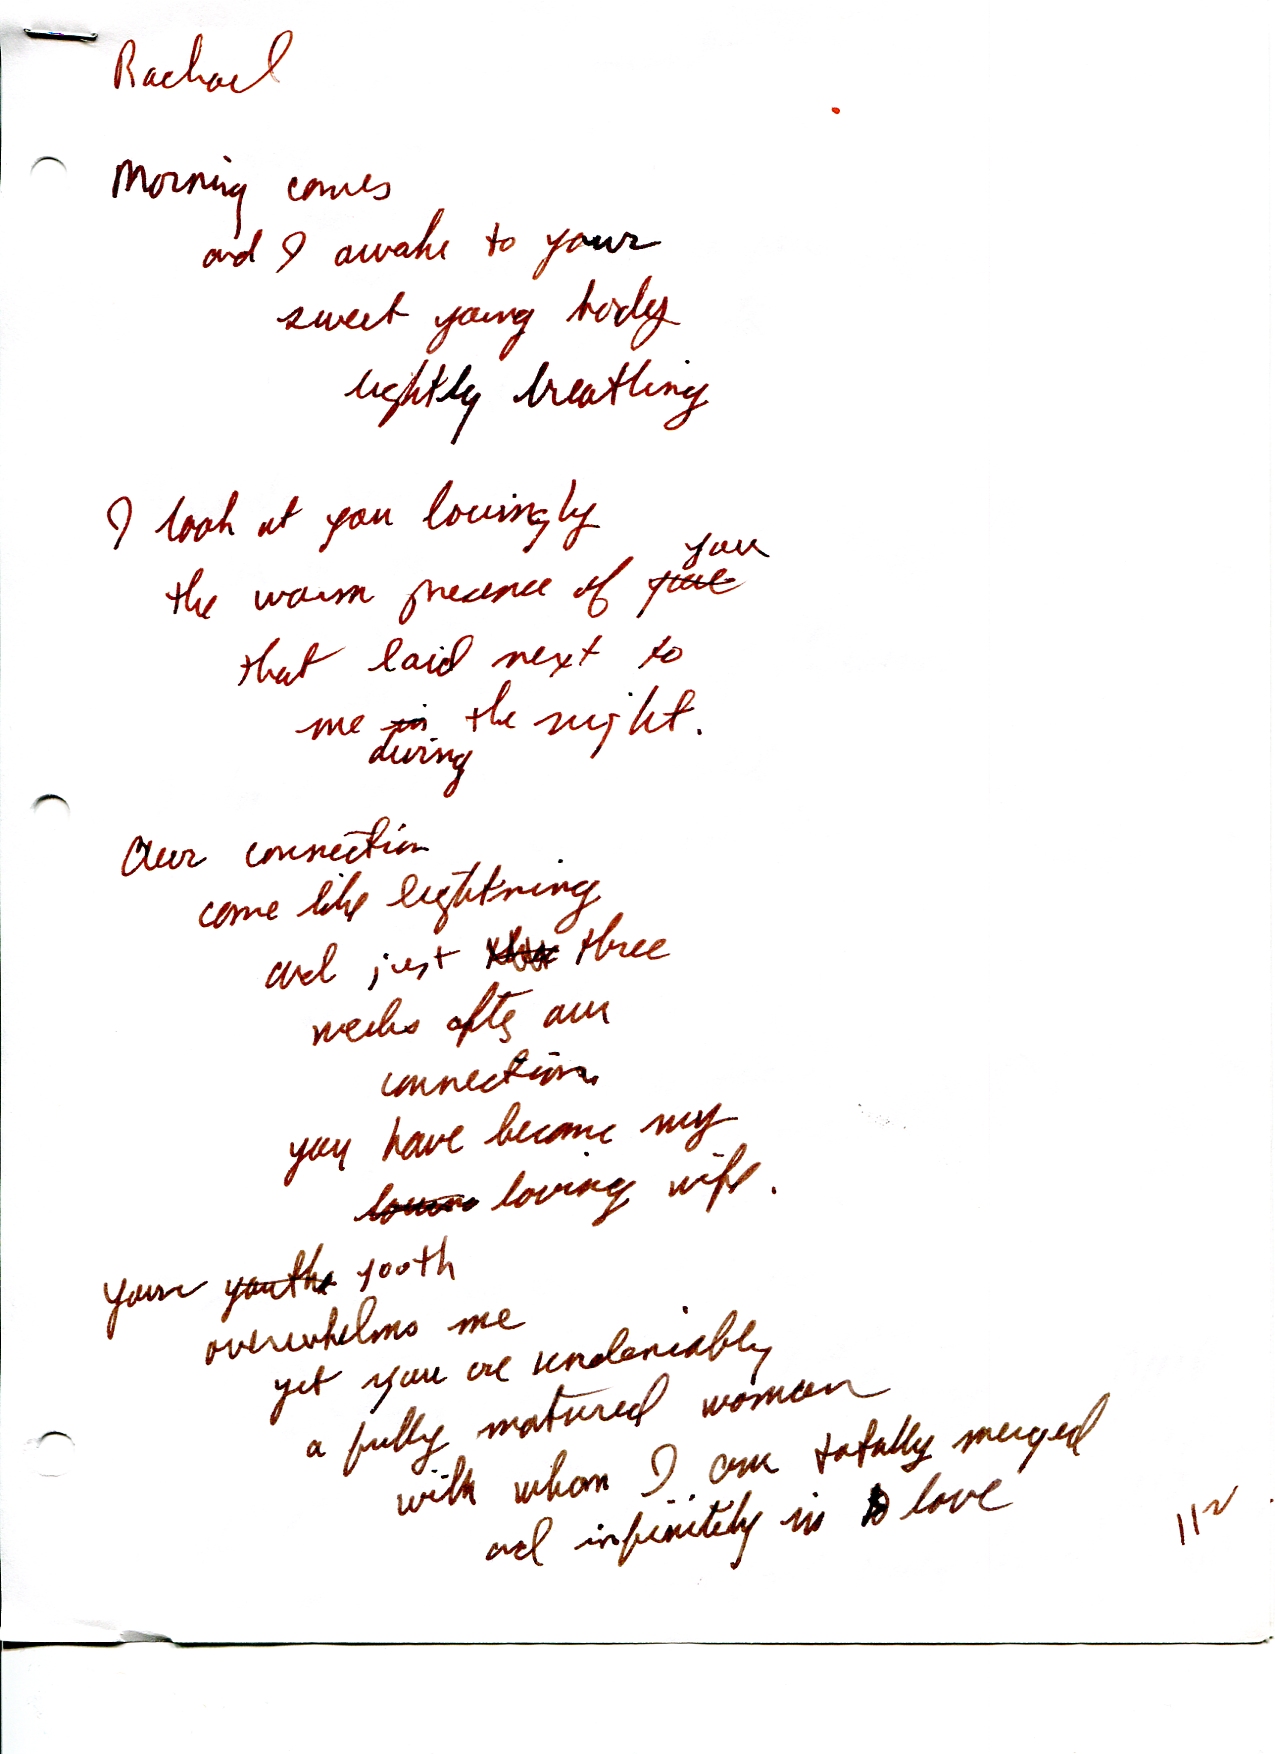 Rachael
Morning comes
and I awake to your
sweet young body
lightly breathing
I look at you lovingly
you
the warm presence of
that laid next to
me in the night.
during
Our connection
come like lightning
and just three
weeks after our
connection.
you have become my
loving wife.
Your youth youth
overwhelms me
yet you are undeniably
a fully matured woman
with whom I am totally merged
and infinitely in love